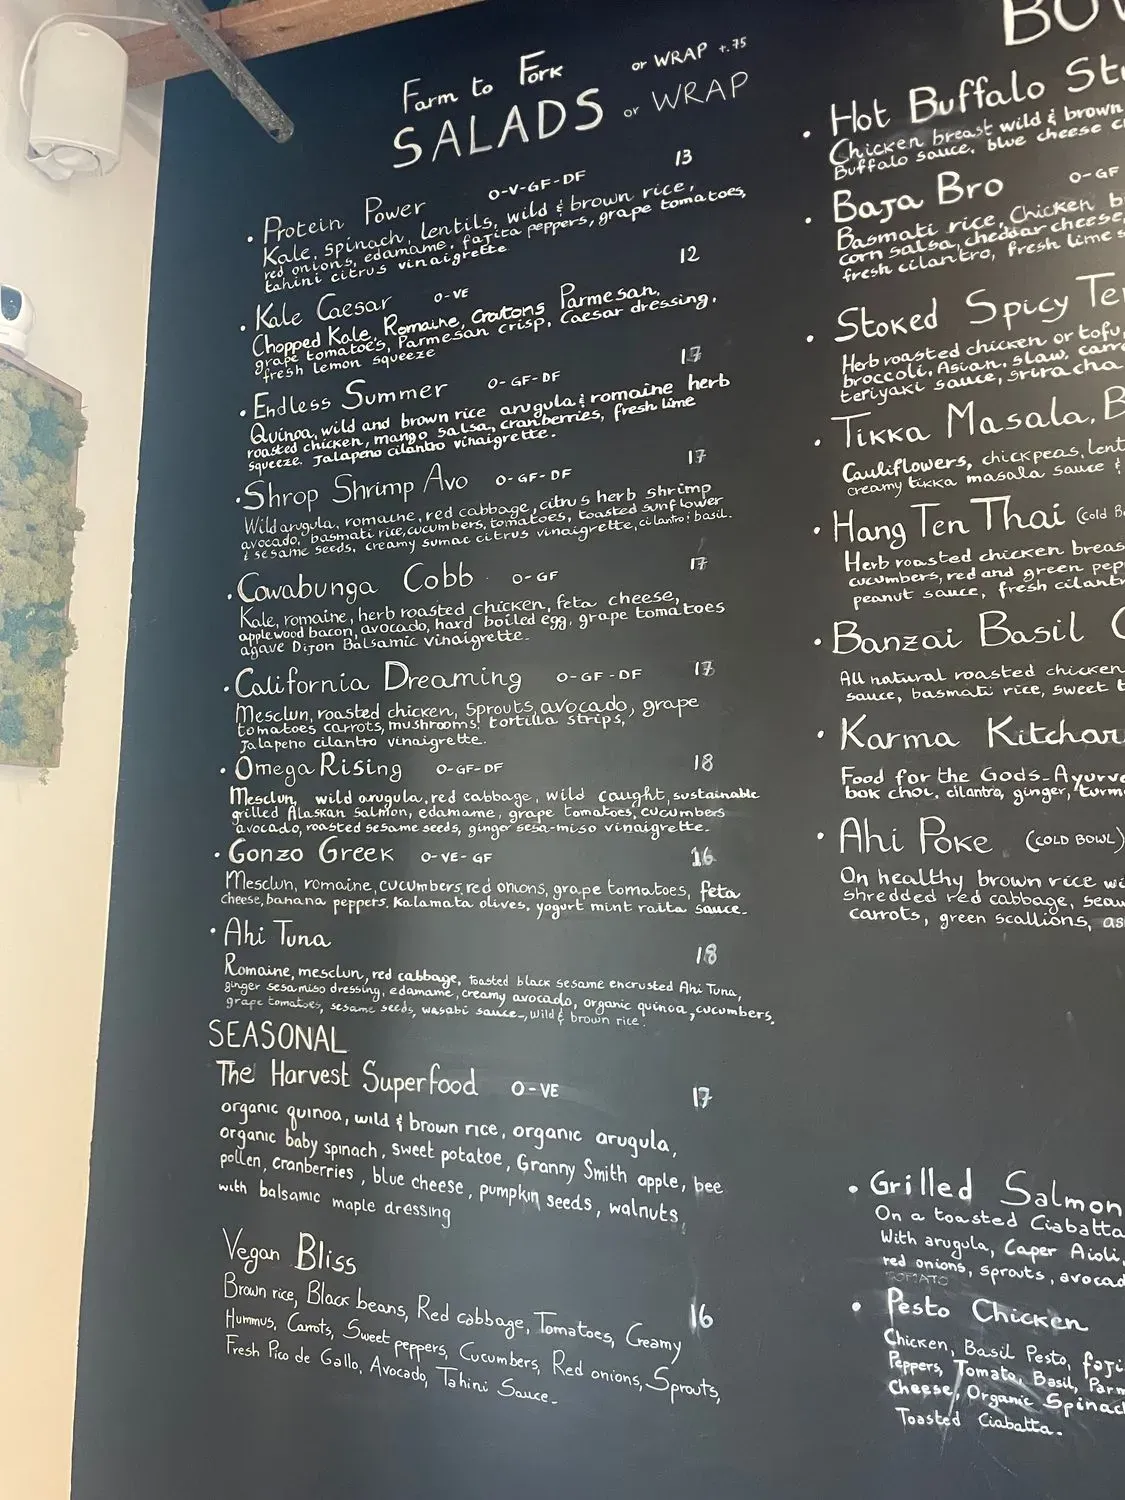 Farm to Fork or WRAP +.75
SALADS or WRAP
• Protein Power O-V-GF-DF 13
Kale, spinach, lentils, wild & brown rice,
red onions, edamame, fajita peppers, grape tomatoes,
tahini citrus vinaigrette
• Kale Caesar O-VE 12
Chopped Kale, Romaine, Crutons Parmesan,
grape tomatoes, Parmesan crisp, Caesar dressing,
fresh lemon squeeze
• Endless Summer O-GF-DF 17
Quinoa, wild and brown rice arugula & romaine herb
roasted chicken, mango salsa, cranberries, fresh lime
squeeze. Jalapeno cilantro vinaigrette.
• Shrop Shrimp Avo O-GF-DF 17
Wild arugula, romaine, red cabbage, citrus herb shrimp
avocado, basmati rice, cucumbers, tomatoes, toasted sunflower
& sesame seeds, creamy sumac citrus vinaigrette, cilantro & basil.
• Cowabunga Cobb O-GF 17
Kale, romaine, herb roasted chicken, feta cheese,
applewood bacon, avocado, hard boiled egg, grape tomatoes
agave Dijon Balsamic vinaigrette.
• California Dreaming O-GF-DF 17
Mesclun, roasted chicken, sprouts, avocado, grape
tomatoes carrots, mushrooms, tortilla strips,
Jalapeno cilantro vinaigrette.
• Omega Rising O-GF-DF 18
Mesclun, wild arugula, red cabbage, wild caught, sustainable
grilled Alaskan Salmon, edamame, grape tomatoes, cucumbers
avocado, roasted sesame seeds, ginger sesa-miso vinaigrette.
• Gonzo Greek O-VE-GF 16
Mesclun, romaine, cucumbers, red onions, grape tomatoes, feta
cheese, banana peppers, kalamata olives, yogurt mint raita sauce.
• Ahi Tuna 18
Romaine, mesclun, red cabbage, toasted black sesame encrusted Ahi Tuna,
ginger sesamiso dressing, edamame, creamy avocado, organic quinoa, cucumbers,
grape tomatoes, sesame seeds, wasabi sauce, wild & brown rice.
SEASONAL
The Harvest Superfood O-VE 17
organic quinoa, wild & brown rice, organic arugula,
organic baby spinach, sweet potatoe, Granny Smith apple, bee
pollen, cranberries, blue cheese, pumpkin seeds, walnuts,
with balsamic maple dressing
Vegan Bliss 16
Brown rice, Black beans, Red cabbage, Tomatoes, Creamy
Hummus, Carrots, Sweet peppers, Cucumbers, Red onions, Sprouts,
Fresh Pico de Gallo, Avocado, Tahini Sauce.
• Hot Buffalo
Chicken breast wild & brown
Buffalo sauce, blue cheese
• Baja Bro O-GF
Basmati rice, Chicken
corn salsa, cheddar cheese,
fresh cilantro, fresh lime
• Stoked Spicy
Herb roasted chicken or tofu,
broccoli, Asian, slaw,
teriyaki sauce, sriracha
• Tikka Masala,
Cauliflowers, chickpeas,
creamy tikka masala sauce &
• Hang Ten Thai (Cold
Herb roasted chicken
cucumbers, red and green
peanut sauce, fresh
• Banzai Basil
All natural roasted chicken
sauce, basmati rice, sweet
• Karma
Food for the Gods-
bok choi, cilantro, ginger,
• Ahi Poke (COLD BOWL)
On healthy brown rice
shredded red cabbage,
carrots, green scallions,
• Grilled Salmon
On a toasted Ciabatta
With arugula, Caper Aioli,
red onions, sprouts,
TOMATO
• Pesto Chicken
Chicken, Basil Pesto,
Peppers, Tomato, Basil,
Cheese, Organic
Toasted Ciabatta.